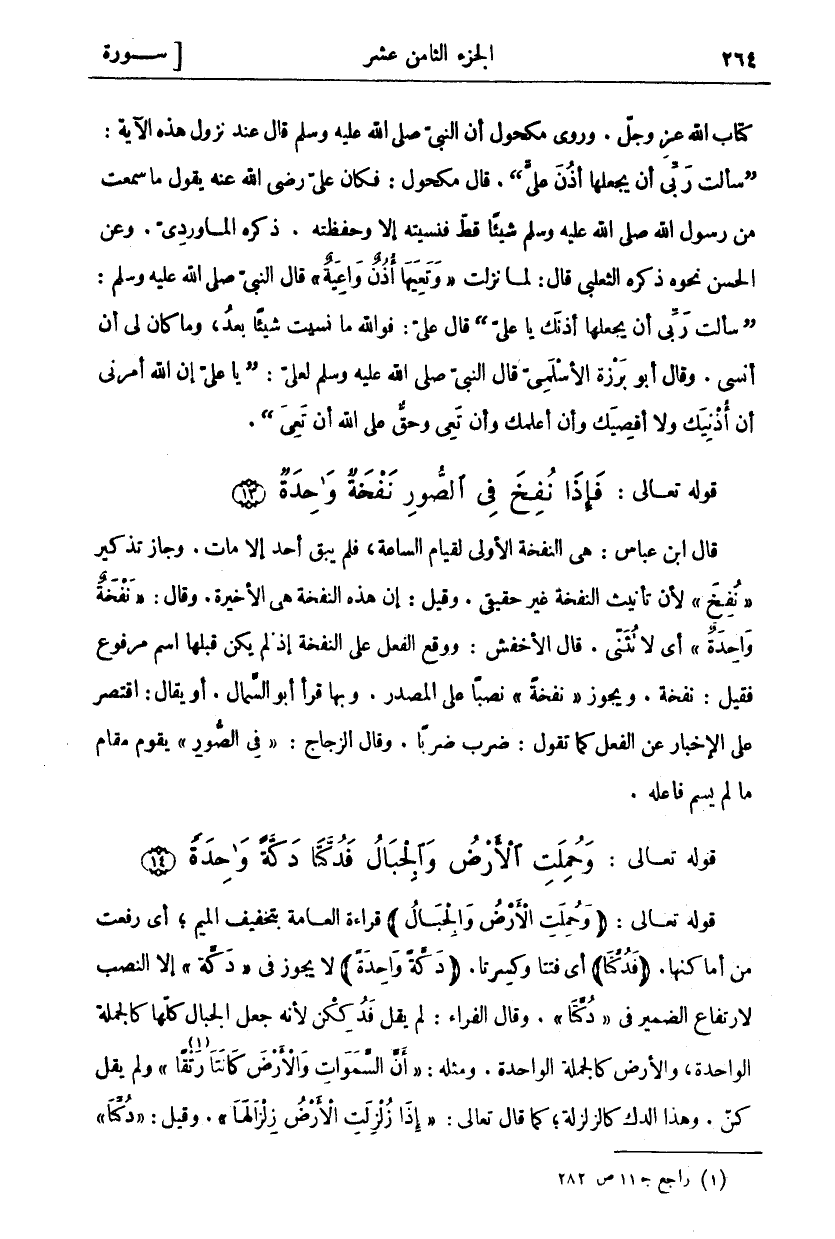 ٢٦٤ الجزء الثامن عشر [ ســورة
كتاب الله عز وجلّ . وروى مكحول أن النبىّ صلى الله عليه وسلم قال عند نزول هذه الآية :
”سألت رَبِّى أن يجعلها أذُنَ علىّ“ . قال مكحول : فكان علىّ رضى الله عنه يقول ما سمعت
من رسول الله صلى الله عليه وسلم شيئًا قطّ فنسيته إلا وحفظته . ذكره المـاوردىّ . وعن
الحسن نحوه ذكره الثعلبى قال : لمـا نزلت « وَتَعِيَهَا أُذُنٌ وَاعِيَةٌ » قال النبىّ صلى الله عليه وسلم :
”سألت رَبِّى أن يجعلها أذنَك يا علىّ“ قال علىّ : فوالله ما نسيت شيئًا بعدُ، وما كان لى أن
أنسى . وقال أبو بَرْزة الأسْلَمِىّ قال النبىّ صلى الله عليه وسلم لعلىّ : ”يا علىّ إن الله أمرنى
أن أُدْنِيَك ولا أقصِيَك وأن أعلمك وأن تَعِى وحقٌّ على الله أن تَعِىَ“ .
قوله تعـالى : فَإِذَا نُفِخَ فِى ٱلصُّورِ نَفْخَةٌ وَٰحِدَةٌ ﴿١٣﴾
قال ابن عباس : هى النفخة الأولى لقيام الساعة، فلم يبق أحد إلا مات . وجاز تذكير
« نُفِخَ » لأن تأنيث النفخة غير حقيقى . وقيل : إن هذه النفخة هى الأخيرة . وقال : « نَفْخَةٌ
وَاحِدَةٌ » أى لا تُثَنَّى . قال الأخفش : ووقع الفعل على النفخة إذ لم يكن قبلها اسم مرفوع
فقيل : نفخة . ويجوز « نفخةً » نصبًا على المصدر . وبها قرأ أبو السَّمال . أو يقال : اقتصر
على الإخبار عن الفعل كما تقول : ضرب ضربًا . وقال الزجاج : « فِى الصُّورِ » يقوم مقام
ما لم يسم فاعله .
قوله تعـالى : وَحُمِلَتِ ٱلْأَرْضُ وَٱلْجِبَالُ فَدُكَّتَا دَكَّةً وَٰحِدَةً ﴿١٤﴾
قوله تعـالى : ﴿ وَحُمِلَتِ الْأَرْضُ وَالْجِبَالُ ﴾ قراءة العـامة بتخفيف الميم ؛ أى رفعت
من أماكنها . ﴿ فَدُكَّتَا ﴾ أى فتتا وكسرتا . ﴿ دَكَّةً وَاحِدَةً ﴾ لا يجوز فى « دَكَّة » إلا النصب
لارتفاع الضمير فى « دُكَّتَا » . وقال الفراء : لم يقل فَدُكِكْن لأنه جعل الجبال كلّها كالجملة
الواحدة ، والأرض كالجملة الواحدة . ومثله : « أَنَّ السَّمَوَاتِ وَالْأَرْضَ كَانَتَا رَتْقًا (١) » ولم يقل
كنّ . وهذا الدك كالزلزلة ؛ كما قال تعالى : « إِذَا زُلْزِلَتِ الْأَرْضُ زِلْزَالَهَا » . وقيل : « دُكَّتَا »
(١) راجع جـ ١١ ص ٢٨٢